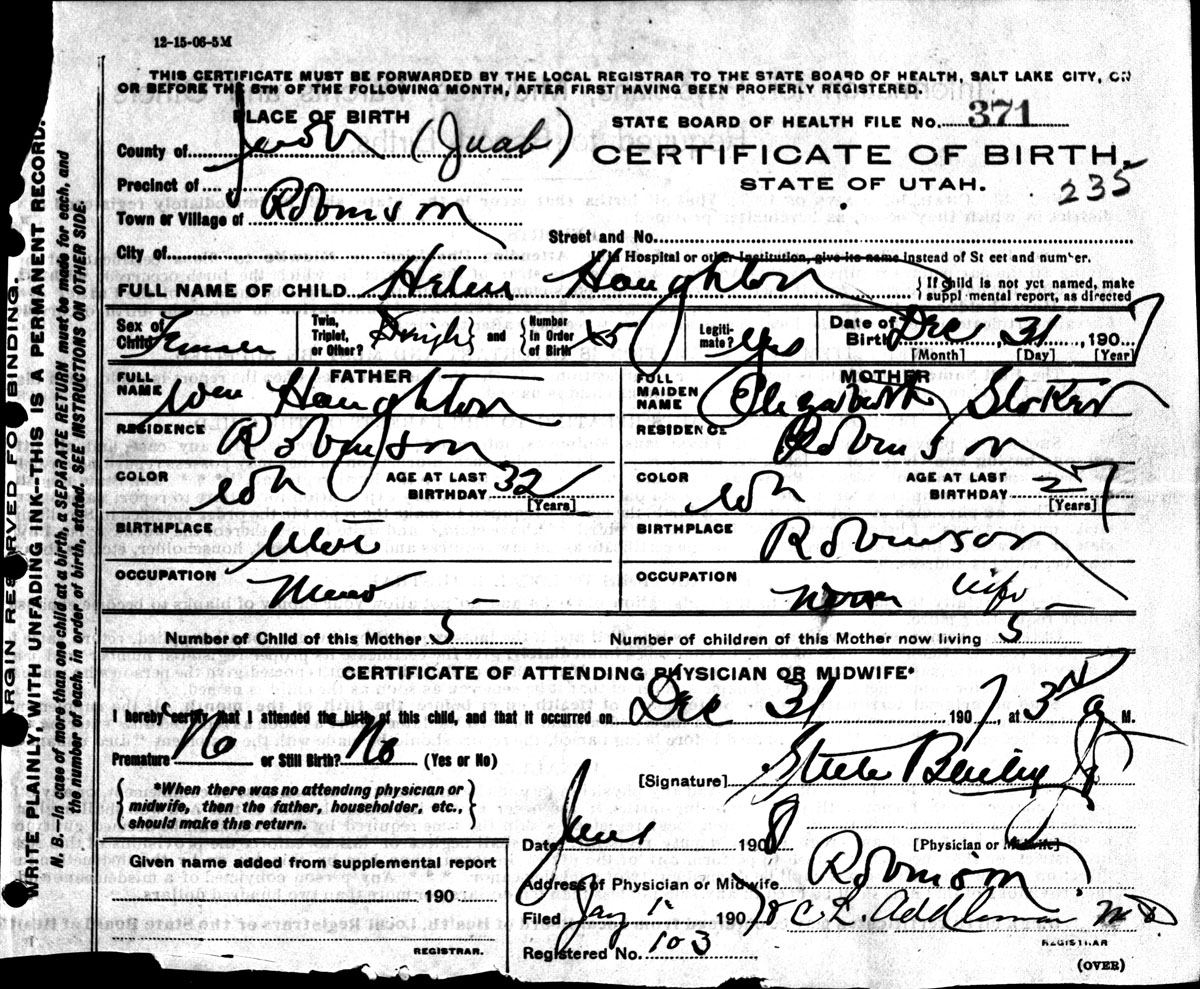 12-15-06-5M
THIS CERTIFICATE MUST BE FORWARDED BY THE LOCAL REGISTRAR TO THE STATE BOARD OF HEALTH, SALT LAKE CITY, ON
OR BEFORE THE 5TH OF THE FOLLOWING MONTH, AFTER FIRST HAVING BEEN PROPERLY REGISTERED.
PLACE OF BIRTH
STATE BOARD OF HEALTH FILE No. 371
County of (Juab)
CERTIFICATE OF BIRTH
Precinct of
STATE OF UTAH.
235
Town or Village of Robinson
Street and No.
City of
If in Hospital or other Institution, give its name instead of St eet and number.
FULL NAME OF CHILD Helen Haughton
{ If child is not yet named, make suppl mental report, as directed
Sex of Child Female
Twin, Triplet, or Other? Single } and { Number in Order of Birth 5
Legitimate? Yes
Date of Birth Dec 31, 1907
[Month] [Day] [Year]
FATHER
FULL NAME Wm Haughton
RESIDENCE Robinson
COLOR Wh
AGE AT LAST BIRTHDAY 32
[Years]
BIRTHPLACE
OCCUPATION
MOTHER
FULL MAIDEN NAME Elizabeth Stoker
RESIDENCE Robinson
COLOR Wh
AGE AT LAST BIRTHDAY 27
[Years]
BIRTHPLACE Robinson
OCCUPATION wife
Number of Child of this Mother 5
Number of children of this Mother now living 5
CERTIFICATE OF ATTENDING PHYSICIAN OR MIDWIFE*
I hereby certify that I attended the birth of this child, and that it occurred on Dec 31 1907, at 3 a M.
Premature No or Still Birth? No (Yes or No)
[Signature] Steele Bailey Jr
{ *When there was no attending physician or
midwife, then the father, householder, etc.,
should make this return. }
Date 1908
[Physician or Midwife]
Given name added from supplemental report
190
REGISTRAR.
Address of Physician or Midwife Robinson
Filed Jany 1 1908 C. L. Addleman MD
REGISTRAR
Registered No. 103
(OVER)
ARGIN RESERVED FOR BINDING.
WRITE PLAINLY, WITH UNFADING INK--THIS IS A PERMANENT RECORD.
N. B.—In case of more than one child at a birth, a SEPARATE RETURN must be made for each, and
the number of each, in order of birth, stated. SEE INSTRUCTIONS ON OTHER SIDE.